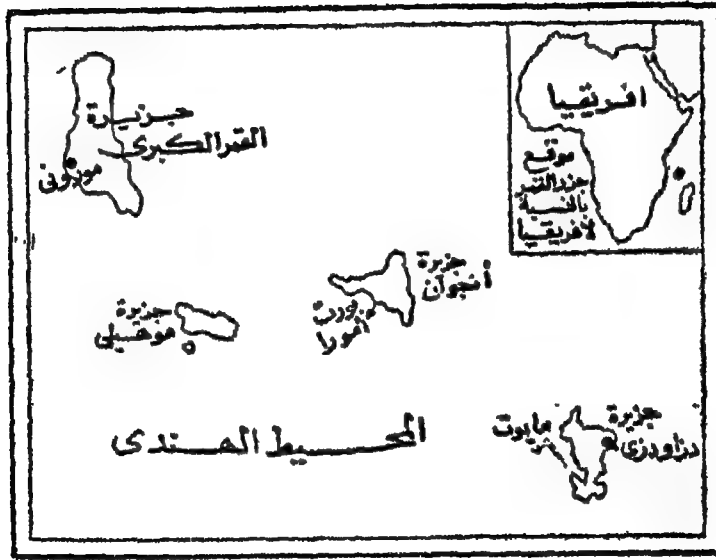 جزيرة
القمر الكبرى
موروني
افريقيا
موقع
جزر القمر
بالنسبة
لأفريقيا
جزيرة
أنجوان
جزيرة
موهيلي
المحيط الهندى
مايوت
جزيرة
دزاودزى